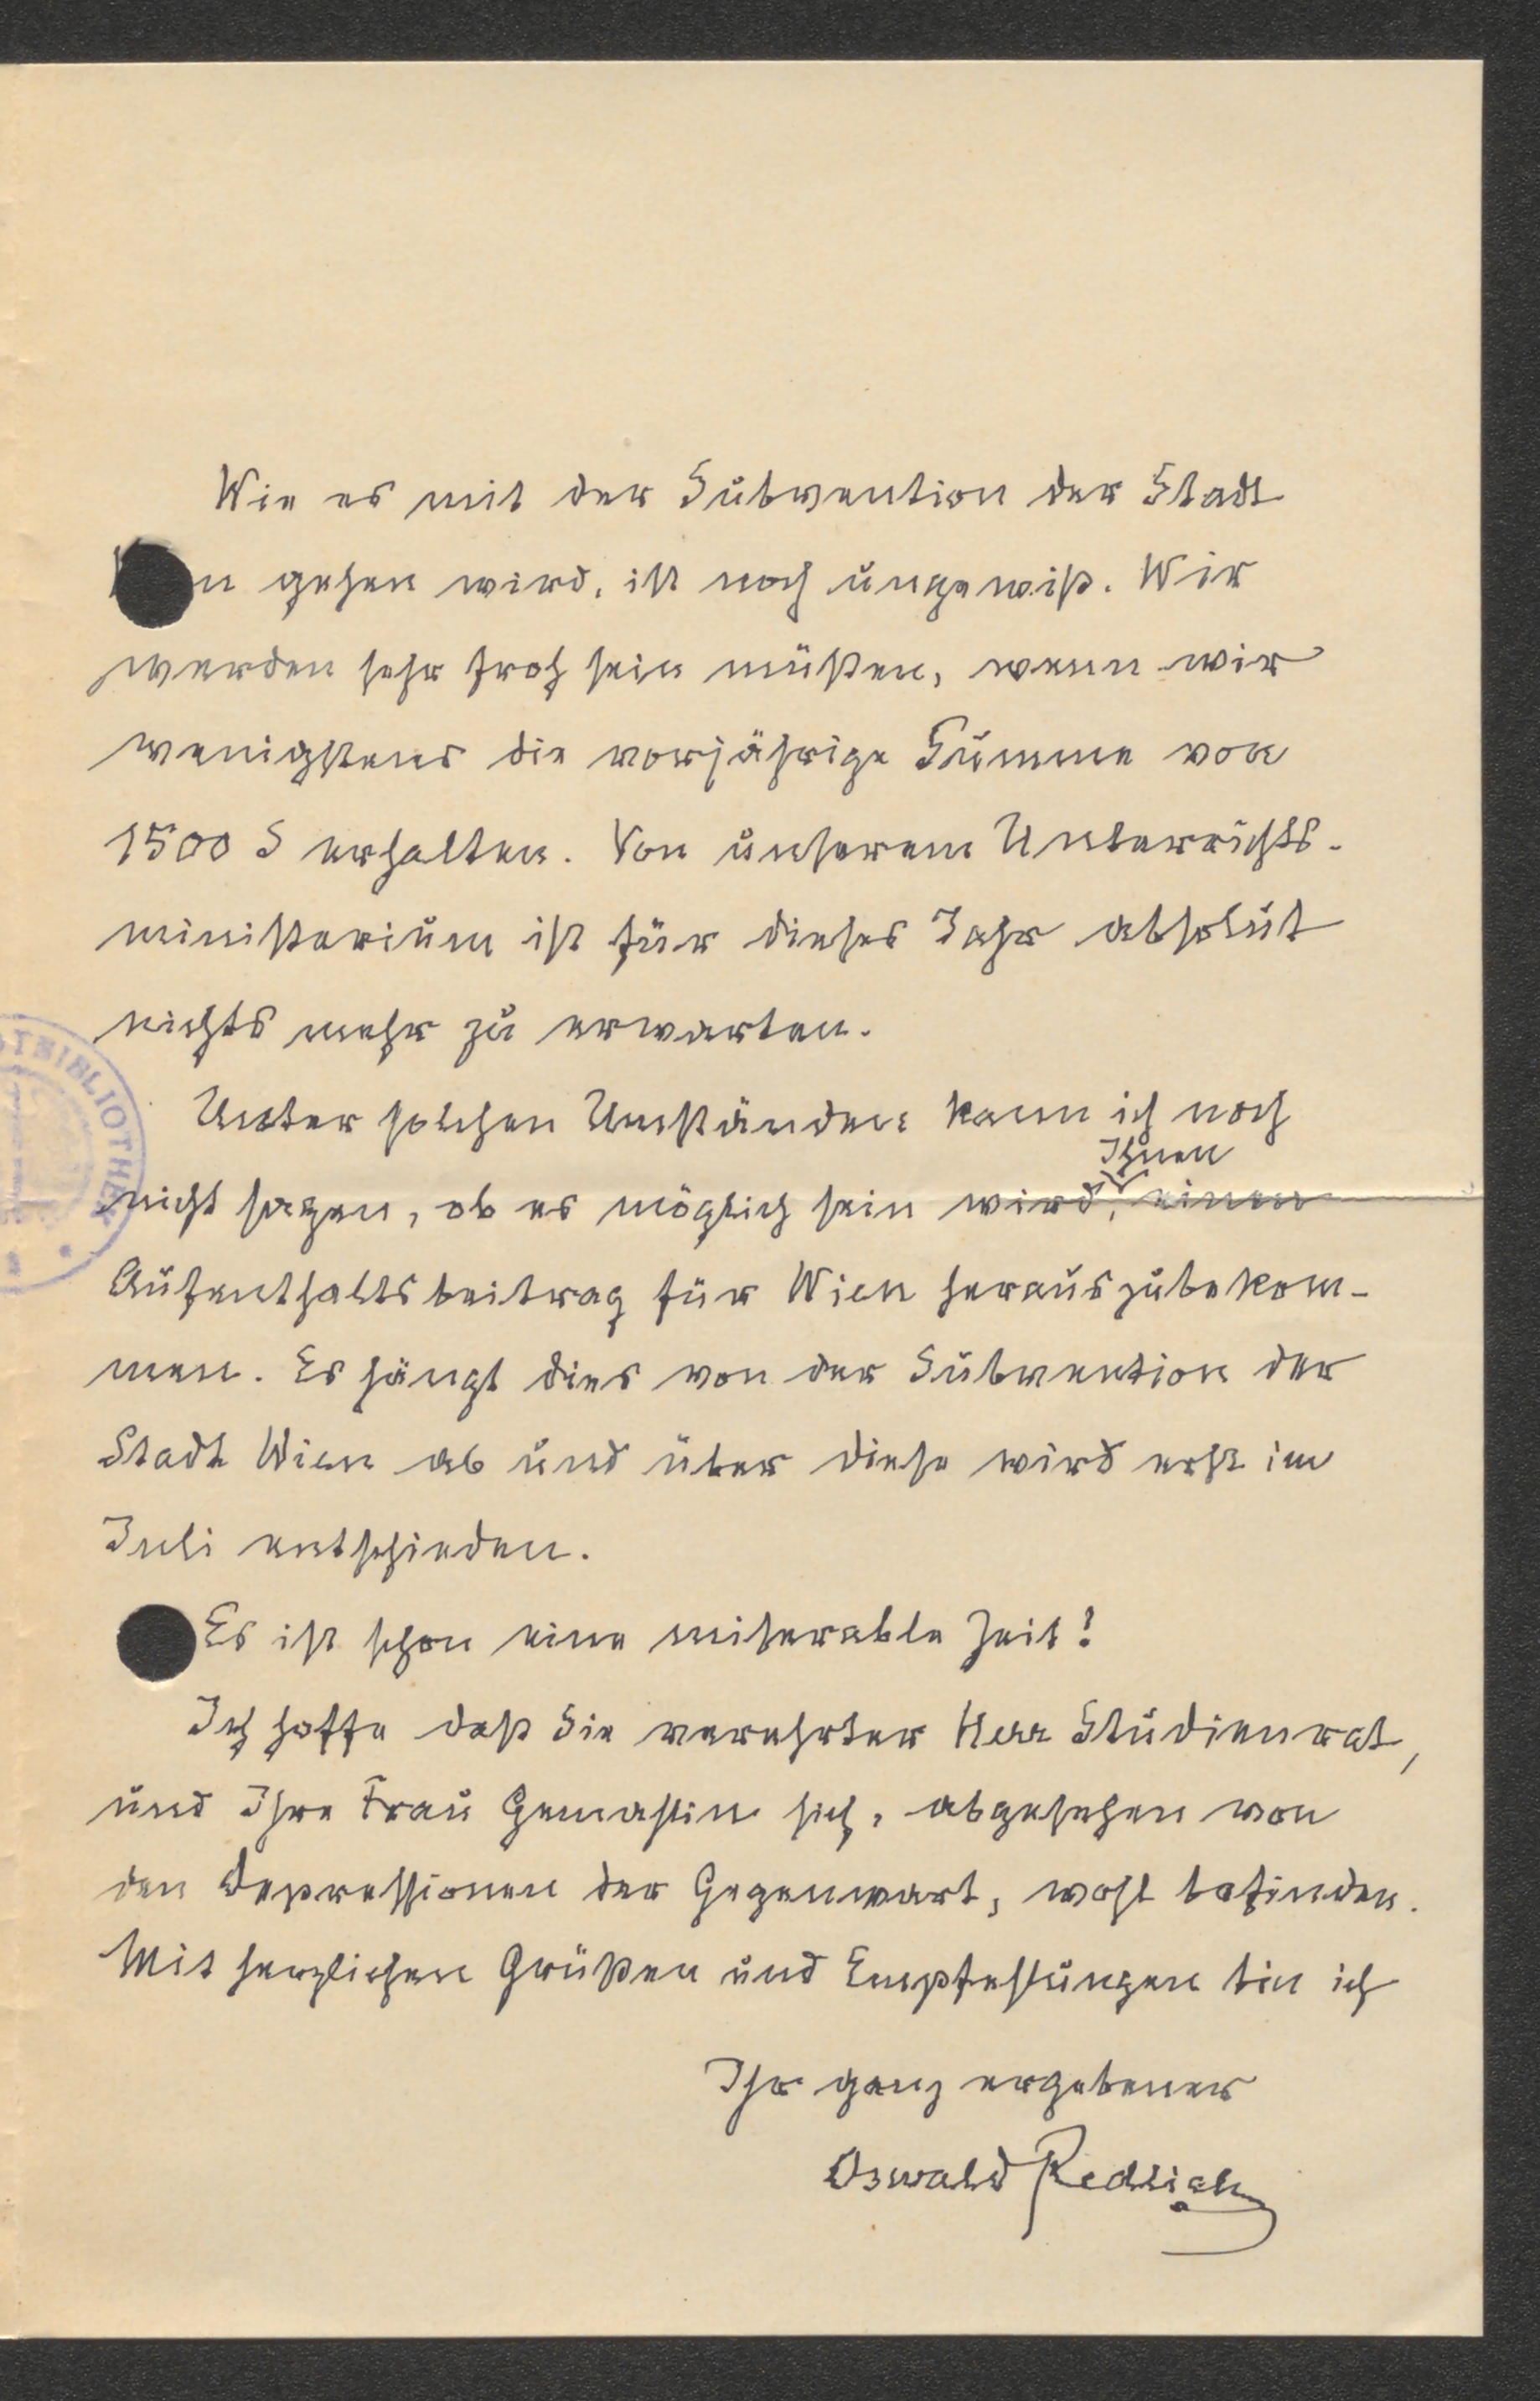 Wie es mit der Subvention der Stadt
n gehen wird, ist noch ungewiß. Wir
werden sehr froh sein müßen, wenn wir
wenigstens die vorjährige Summe von
1500 S erhalten. Von unserem Unterrichts-
ministerium ist für dieses Jahr absolut
nichts mehr zu erwarten.
Unter solchen Umständen kann ich noch
Ihnen
nicht sagen, ob es möglich sein wird, einen
Aufenthaltsbeitrag für Wien herauszubekom-
men. Es hängt dies von der Subvention der
Stadt Wien ab und über diese wird erst im
Juli entschieden.
Es ist schon eine miserable Zeit!
Ich hoffe daß Sie verehrter Herr Studienrat,
und Ihre Frau Gemahlin sich, abgesehen von
den Depressionen der Gegenwart, wohl befinden.
Mit herzlichen Grüßen und Empfehlungen bin ich
Ihr ganz ergebener
Oswald Redlich
TBIBLIOTHEK